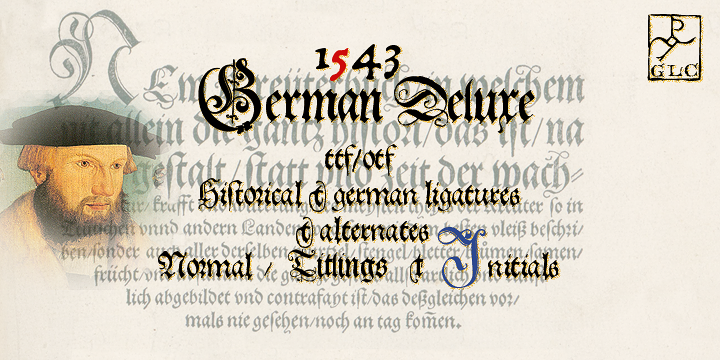 GLC
1543
German Deluxe
ttf/otf
Historical & german ligatures
& alternates
Normal / Titlings & Initials
welchem
nit allein die gantz histori/das ist/na
gestalt/statt vnd zeit der wach-
krafft kreüter so in
vnnd andern vleiß beschri/
ben/sonder auch aller derselben stengel/bletter/blumen/somen/
frücht/
lich abgebildet vnd contrafayt ist/das deßgleichen vor/
mals nie gesehen/noch an tag kom̄en.